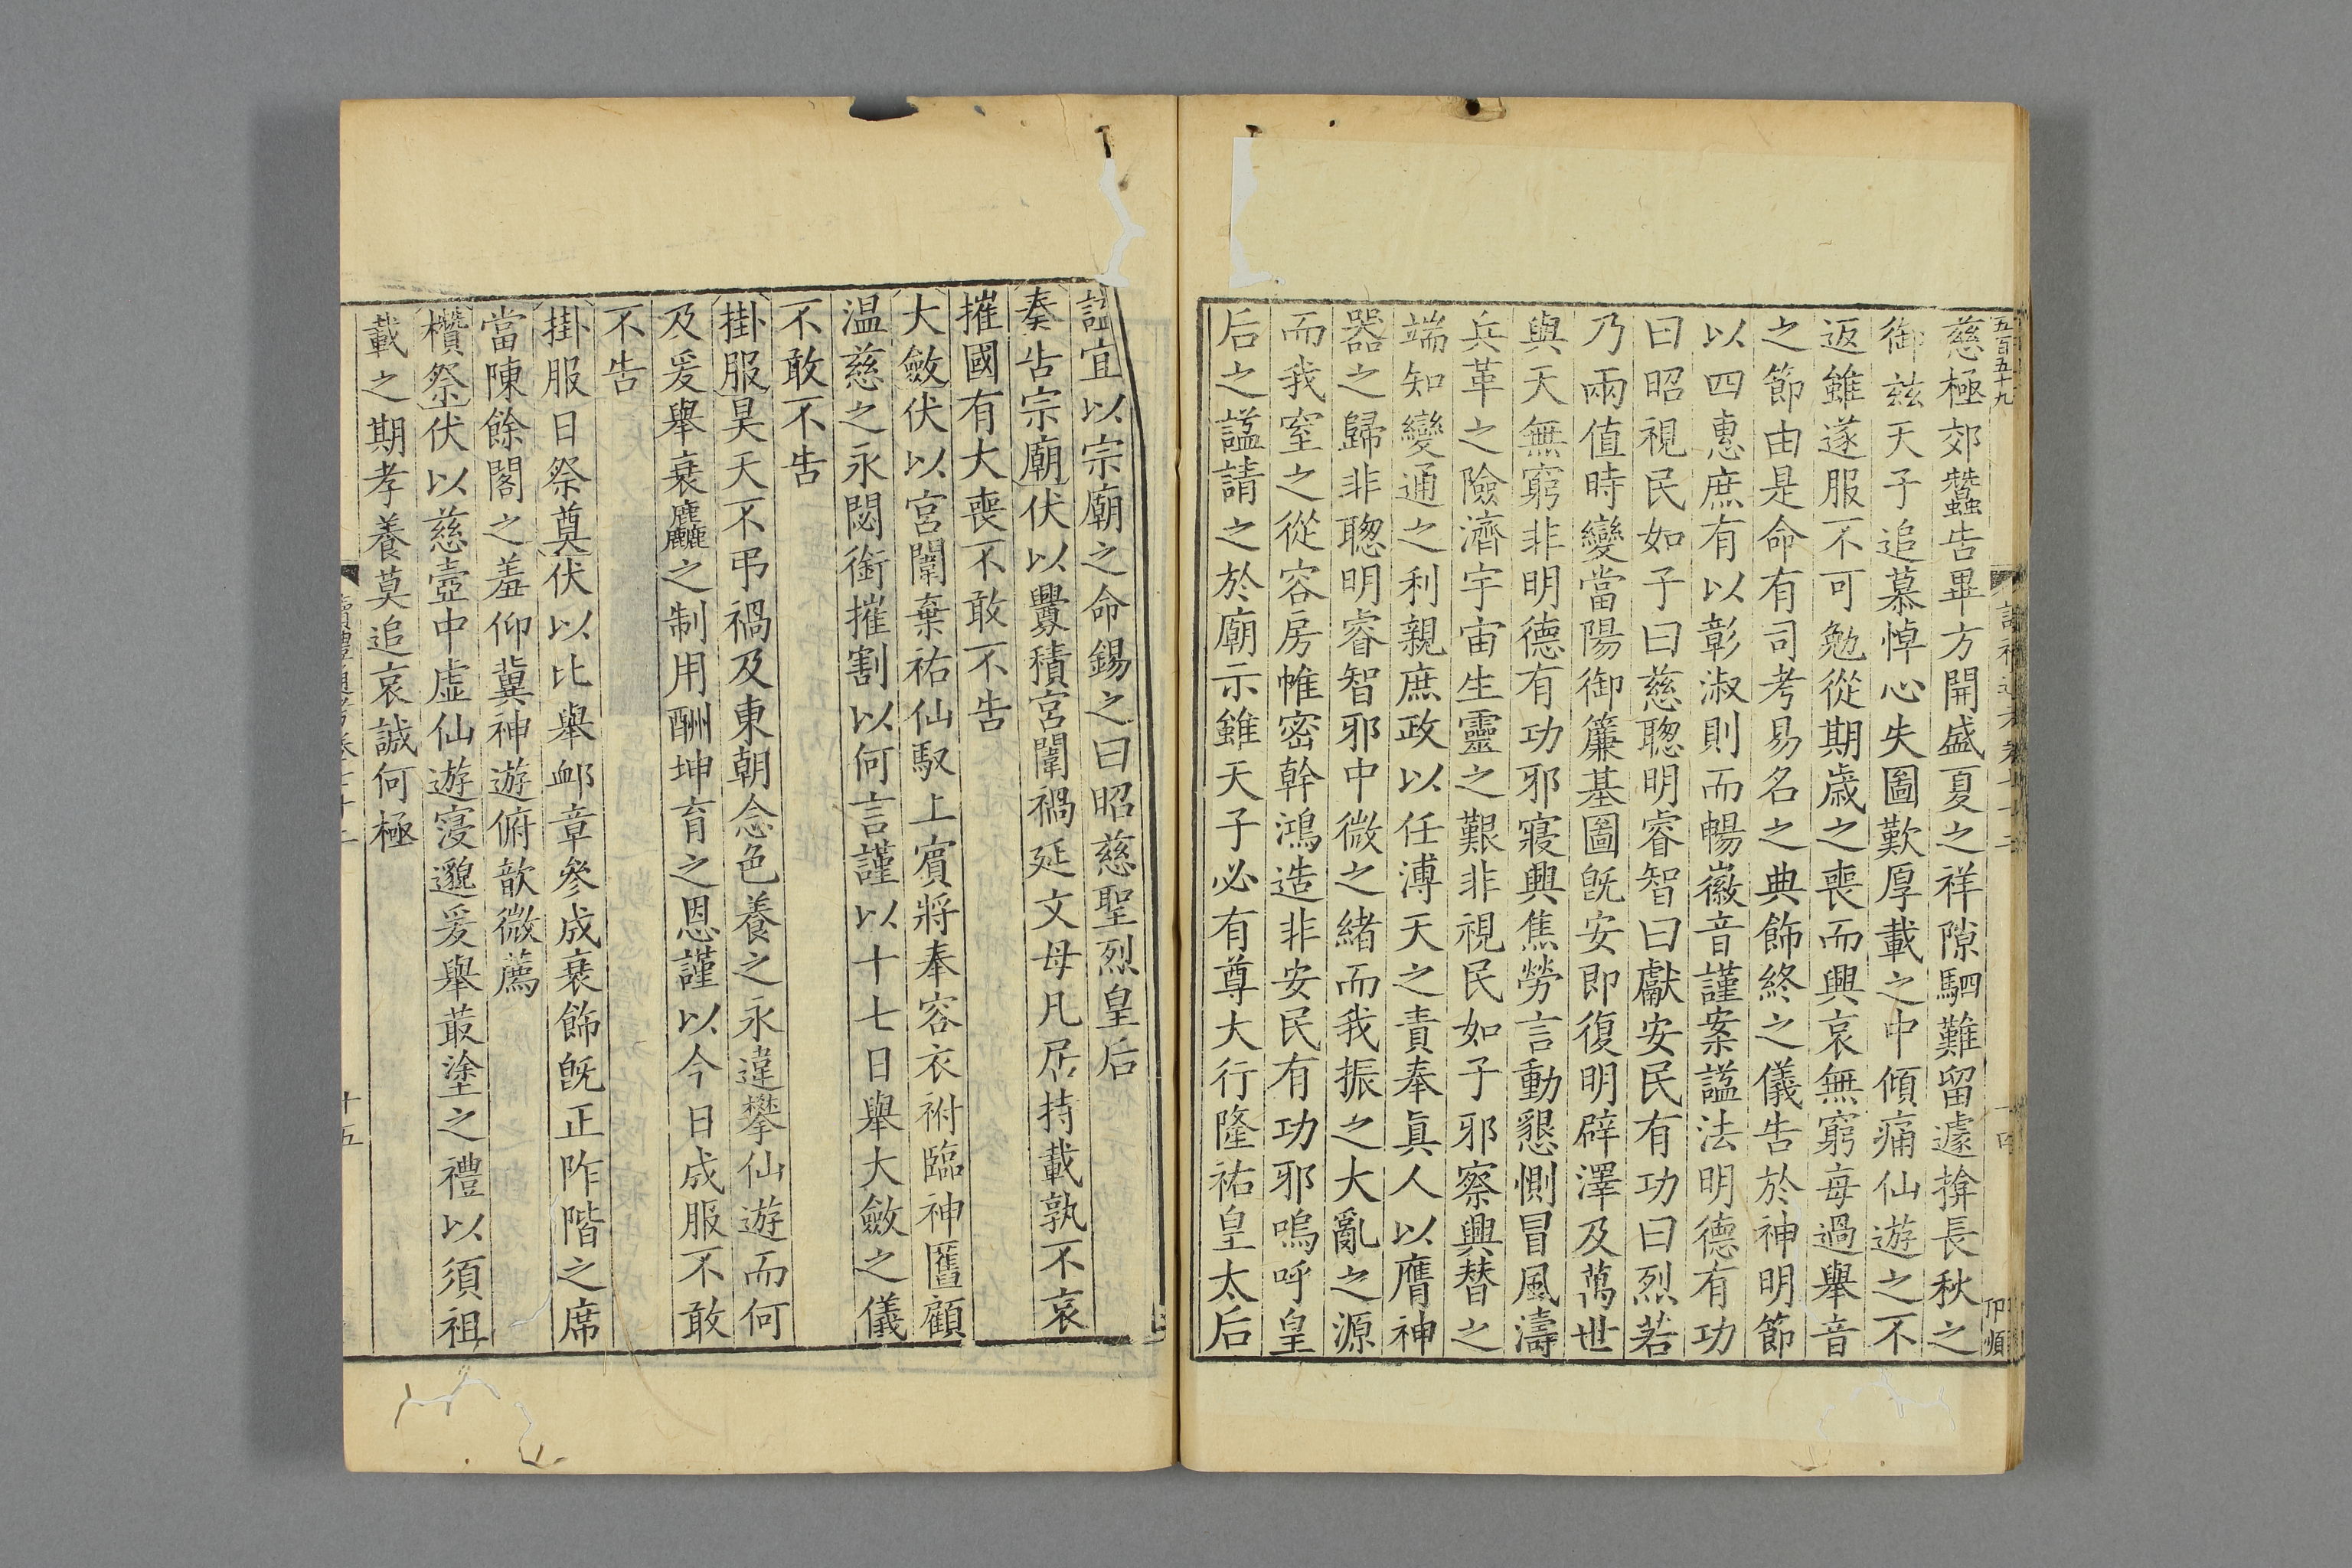 五百五十九
慈極郊蠶告畢方開盛夏之祥隙駟難留遽揜長秋之
御兹天子追慕悼心失圖歎厚載之中傾痛仙遊之不
返雖遂服不可勉從期歳之喪而興哀無窮每過舉音
之節由是命有司考易名之典飾終之儀告於神明節
以四惠庶有以彰淑則而暢徽音謹案諡法明德有功
曰昭視民如子曰慈聦明睿智曰獻安民有功曰烈若
乃兩值時變當陽御簾基圖旣安即復明辟澤及萬世
與天無窮非明德有功邪寢興焦勞言動懇惻冒風濤
兵革之險濟宇宙生靈之艱非視民如子邪察興替之
端知變通之利親庶政以任溥天之責奉眞人以膺神
器之歸非聦明睿智邪中微之緒而我振之大亂之源
而我窒之從容房帷密幹鴻造非安民有功邪嗚呼皇
后之諡請之於廟示雖天子必有尊大行隆祐皇太后
諡宜以宗廟之命錫之曰昭慈聖烈皇后
奏告宗廟伏以釁積宮闈禍延文母凡居持載孰不哀
摧國有大喪不敢不告
大斂伏以宮闈棄祐仙馭上賓將奉容衣祔臨神匶顧
温慈之永閟銜摧割以何言謹以十七日舉大斂之儀
不敢不告
掛服昊天不弔禍及東朝念色養之永違攀仙遊而何
及爰舉衰麤之制用酬坤育之恩謹以今日成服不敢
不告
掛服日祭奠伏以比舉䘏章參成衰飾旣正阼階之席
當陳餘閣之羞仰冀神遊俯歆微薦
欑祭伏以慈壼中虛仙遊寖邈爰舉菆塗之禮以須祖
載之期孝養莫追哀誠何極
十五